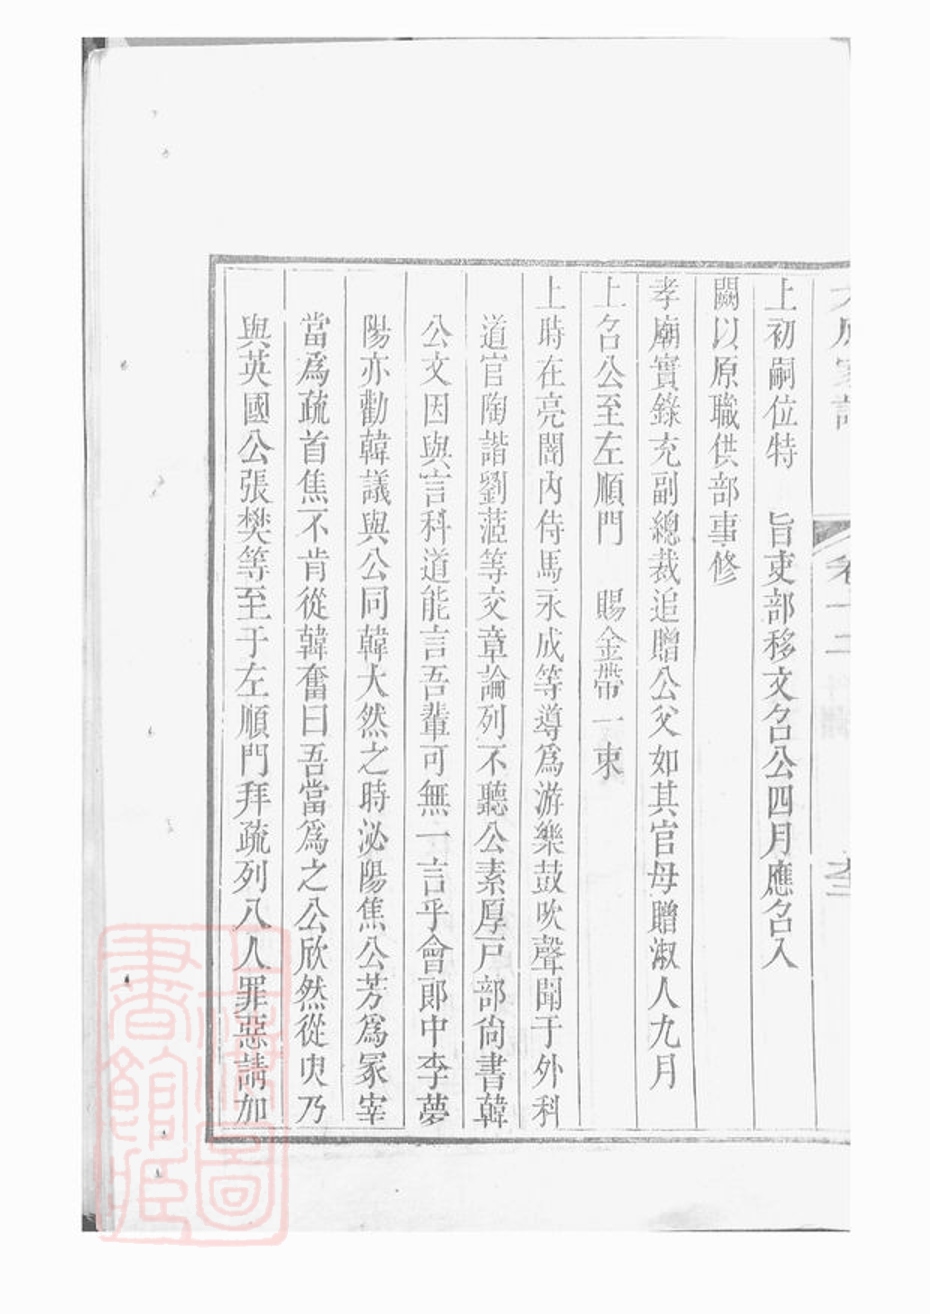 上初嗣位特　旨吏部移文召公四月應召入
闕以原職供部事修
孝廟實錄充副總裁追贈公父如其官母贈淑人九月
上召公至左順門　賜金帶一束
上時在亮闇內侍馬永成等導爲游樂鼓吹聲聞于外科
道官陶諧劉菃等交章論列不聽公素厚戸部尙書韓
公文因與言科道能言吾輩可無一言乎會郞中李夢
陽亦勸韓議與公同韓大然之時泌陽焦公芳爲冢宰
當爲疏首焦不肯從韓奮曰吾當爲之公欣然從臾乃
與英國公張樊等至于左順門拜疏列八人罪惡請加